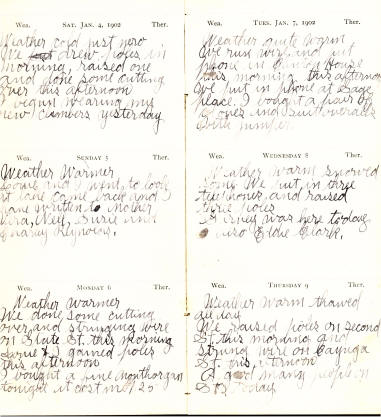 Wea. SAT. JAN. 4, 1902 Ther.
Weather cold just zero
We drew poles in
morning, raised one
and done some cutting
over this afternoon
I began wearing my
new cumbers yesterday
Wea. SUNDAY 5 Ther.
Weather Warmer
and I went to look
at came back and I
have written to Mother
Kira, Susie and
Charley Reynolds.
Wea. MONDAY 6 Ther.
Weather Warmer
We done some cutting
over and stringing wire
on State St. this morning
and I gained poles
this afternoon
I bought a fine
tonight it cost me /25
Wea. TUES. JAN. 7, 1902 Ther.
Weather quite warm
We run wire and put
phone in House
this morning this afternoon
We put in phone at Sage
place. I bought a pair of
and suit overalls
Wea. WEDNESDAY 8 Ther.
Weather Warm snowed
some. We put in three
telephones and raised
three poles
was here today
also Eldie Clark.
Wea. THURSDAY 9 Ther.
Weather Warm thawed
all day
We raised poles on second
St. this morning and
strung wire on Cayuga
St. this afternoon
A good many people on
St's today